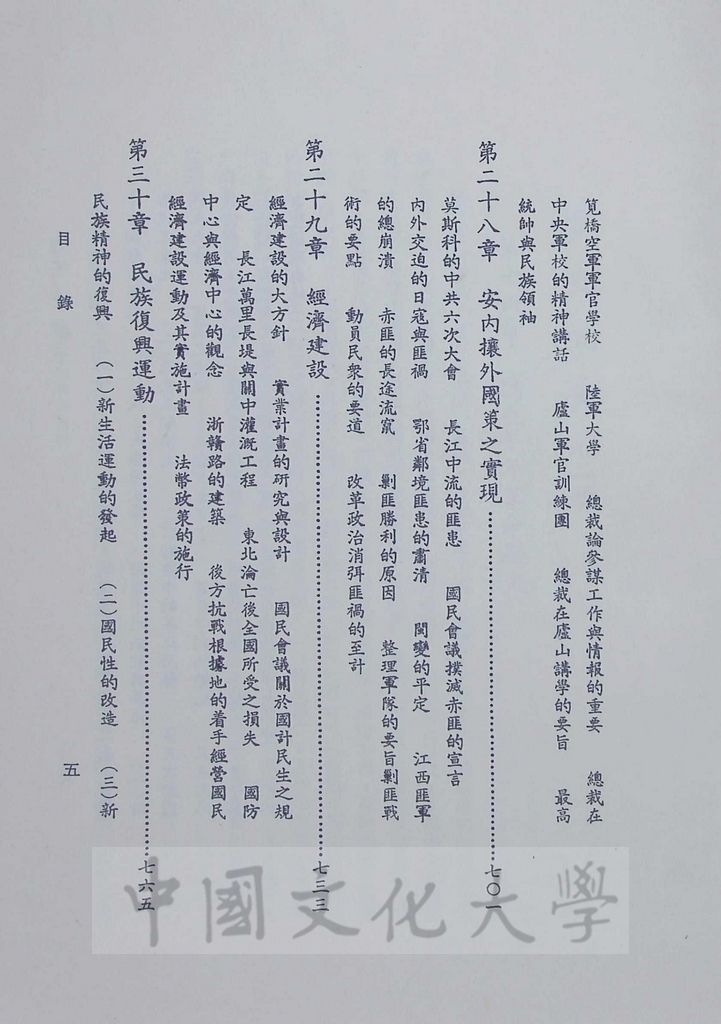 筧橋空軍軍官學校　陸軍大學　總裁論參謀工作與情報的重要　總裁在
中央軍校的精神講話　廬山軍官訓練團　總裁在廬山講學的要旨　最高
統帥與民族領袖
第二十八章　安內攘外國策之實現……七〇一
莫斯科的中共六次大會　長江中流的匪患　國民會議撲滅赤匪的宣言
內外交迫的日寇與匪禍　鄂省鄰境匪患的肅清　閩變的平定　江西匪軍
的總崩潰　赤匪的長途流竄　剿匪勝利的原因　整理軍隊的要旨剿匪戰
術的要點　動員民衆的要道　改革政治消弭匪禍的至計
第二十九章　經濟建設……七三三
經濟建設的大方針　實業計畫的研究與設計　國民會議關於國計民生之規
定　長江萬里長堤與關中灌溉工程　東北淪亡後全國所受之損失　國防
中心與經濟中心的觀念　浙贛路的建築　後方抗戰根據地的着手經營國民
經濟建設運動及其實施計畫　法幣政策的施行
第三十章　民族復興運動……七六五
民族精神的復興　（一）新生活運動的發起　（二）國民性的改造　（三）新
目錄
五
中國文化大學